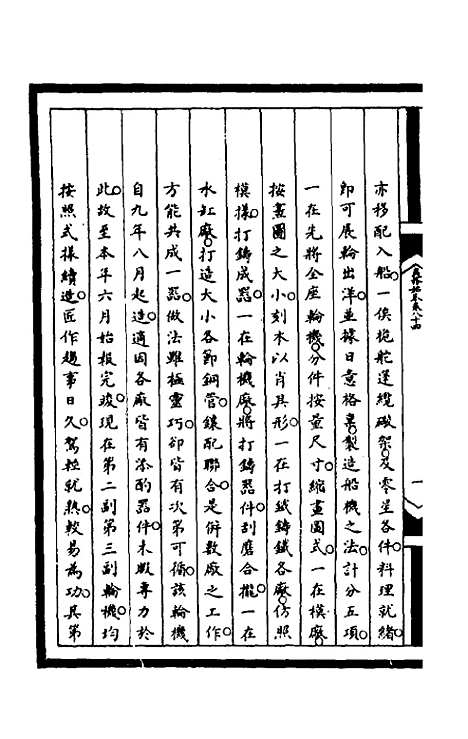 亦移配入船○一俟桅舵蓬纜礮架○及零星各件料理就緒○
即可展輪出洋○並據日意格稟○製造船機之法○計分五項○
一在先將全座輪機○分件按量尺寸○縮畫圖式○一在模廠○
按畫圖之大小○刻木以肖其形○一在打鐵鑄鐵各廠○仿照
模樣○打鑄成器○一在輪機廠○將打鑄器件○刮磨合攏○一在
水缸廠○打造大小各節銅管○鑲配聯合○是併數廠之工作○
方能共成一器○做法雖極靈巧○卻皆有次第可循○該輪機
自九年八月起造○適因各廠皆有添酌器件○未暇專力於
此○故至本年六月始報完竣○現在第二副第三副輪機○均
按照式樣續造○匠作趨事日久○駕輕就熟○較易為功○具第
卷八十四
一